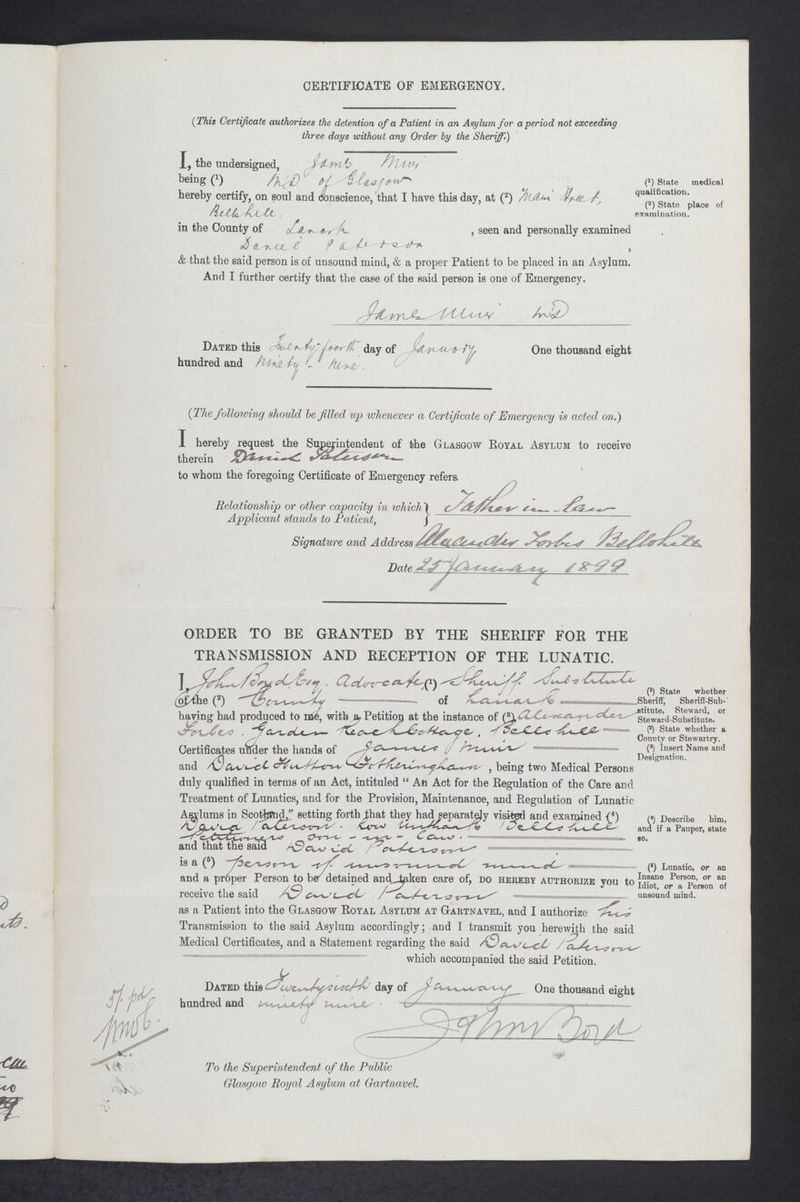 CERTIFICATE OF EMERGENCY.
(This Certificate authorizes the detention of a Patient in an Asylum for a period not exceeding
three days without any Order by the Sheriff.)
I, the undersigned, James Muir
being (¹) M.D of Glasgow
(¹) State medical
qualification.
hereby certify, on soul and conscience, that I have this day, at (²) Main Street,
(²) State place of
examination.
Bellshill,
in the County of Lanark , seen and personally examined
Daniel Paterson ,
& that the said person is of unsound mind, & a proper Patient to be placed in an Asylum.
And I further certify that the case of the said person is one of Emergency.
James Muir M.D
DATED this Twenty-fourth day of January One thousand eight
hundred and Ninety Nine.
(The following should be filled up whenever a Certificate of Emergency is acted on.)
I hereby request the Superintendent of the GLASGOW ROYAL ASYLUM to receive
therein Daniel Paterson
to whom the foregoing Certificate of Emergency refers.
Relationship or other capacity in which } Father in law
Applicant stands to Patient,
Signature and Address Alexander Forbes Bellshill
Date 25 January 1899
ORDER TO BE GRANTED BY THE SHERIFF FOR THE
TRANSMISSION AND RECEPTION OF THE LUNATIC.
I, John Boyd Esq. Advocate, (¹) Sheriff Substitute
(¹) State whether
Sheriff, Sheriff-Sub-
stitute, Steward, or
Steward-Substitute.
of the (²) County of Lanark
having had produced to me, with a Petition at the instance of (³) Alexander
(²) State whether a
County or Stewartry.
Forbes, Garden Cottage, Bellshill
(³) Insert Name and
Designation.
Certificates under the hands of James Muir
and David Hutton Fotheringham , being two Medical Persons
duly qualified in terms of an Act, intituled “ An Act for the Regulation of the Care and
Treatment of Lunatics, and for the Provision, Maintenance, and Regulation of Lunatic
Asylums in Scotland,” setting forth that they had separately visited and examined (⁴)
(⁴) Describe him,
and if a Pauper, state
so.
David Paterson. Bellshill
Petitioners son-in-law.
and that the said David Paterson
is a (⁵) person of unsound mind
(⁵) Lunatic, or an
Insane Person, or an
Idiot, or a Person of
unsound mind.
and a proper Person to be detained and taken care of, DO HEREBY AUTHORIZE you to
receive the said David Paterson
as a Patient into the GLASGOW ROYAL ASYLUM AT GARTNAVEL, and I authorize his
Transmission to the said Asylum accordingly; and I transmit you herewith the said
Medical Certificates, and a Statement regarding the said David Paterson
which accompanied the said Petition.
DATED this Twentysixth day of January One thousand eight
hundred and ninety nine.
5/- pd
John Boyd
To the Superintendent of the Public
Glasgow Royal Asylum at Gartnavel.